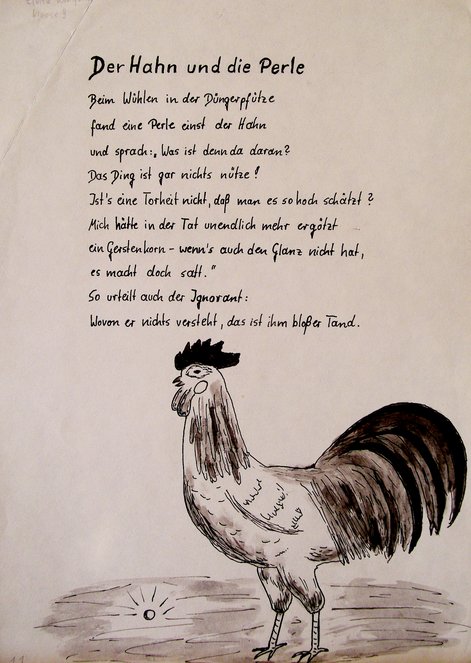 Der Hahn und die Perle
Beim Wühlen in der Düngerpfütze
fand eine Perle einst der Hahn
und sprach: „Was ist denn da daran?
Das Ding ist gar nichts nütze!
Ist's eine Torheit nicht, daß man es so hoch schätzt?
Mich hätte in der Tat unendlich mehr ergötzt
ein Gerstenkorn - wenn's auch den Glanz nicht hat,
es macht doch satt."
So urteilt auch der Ignorant:
Wovon er nichts versteht, das ist ihm bloßer Tand.
11